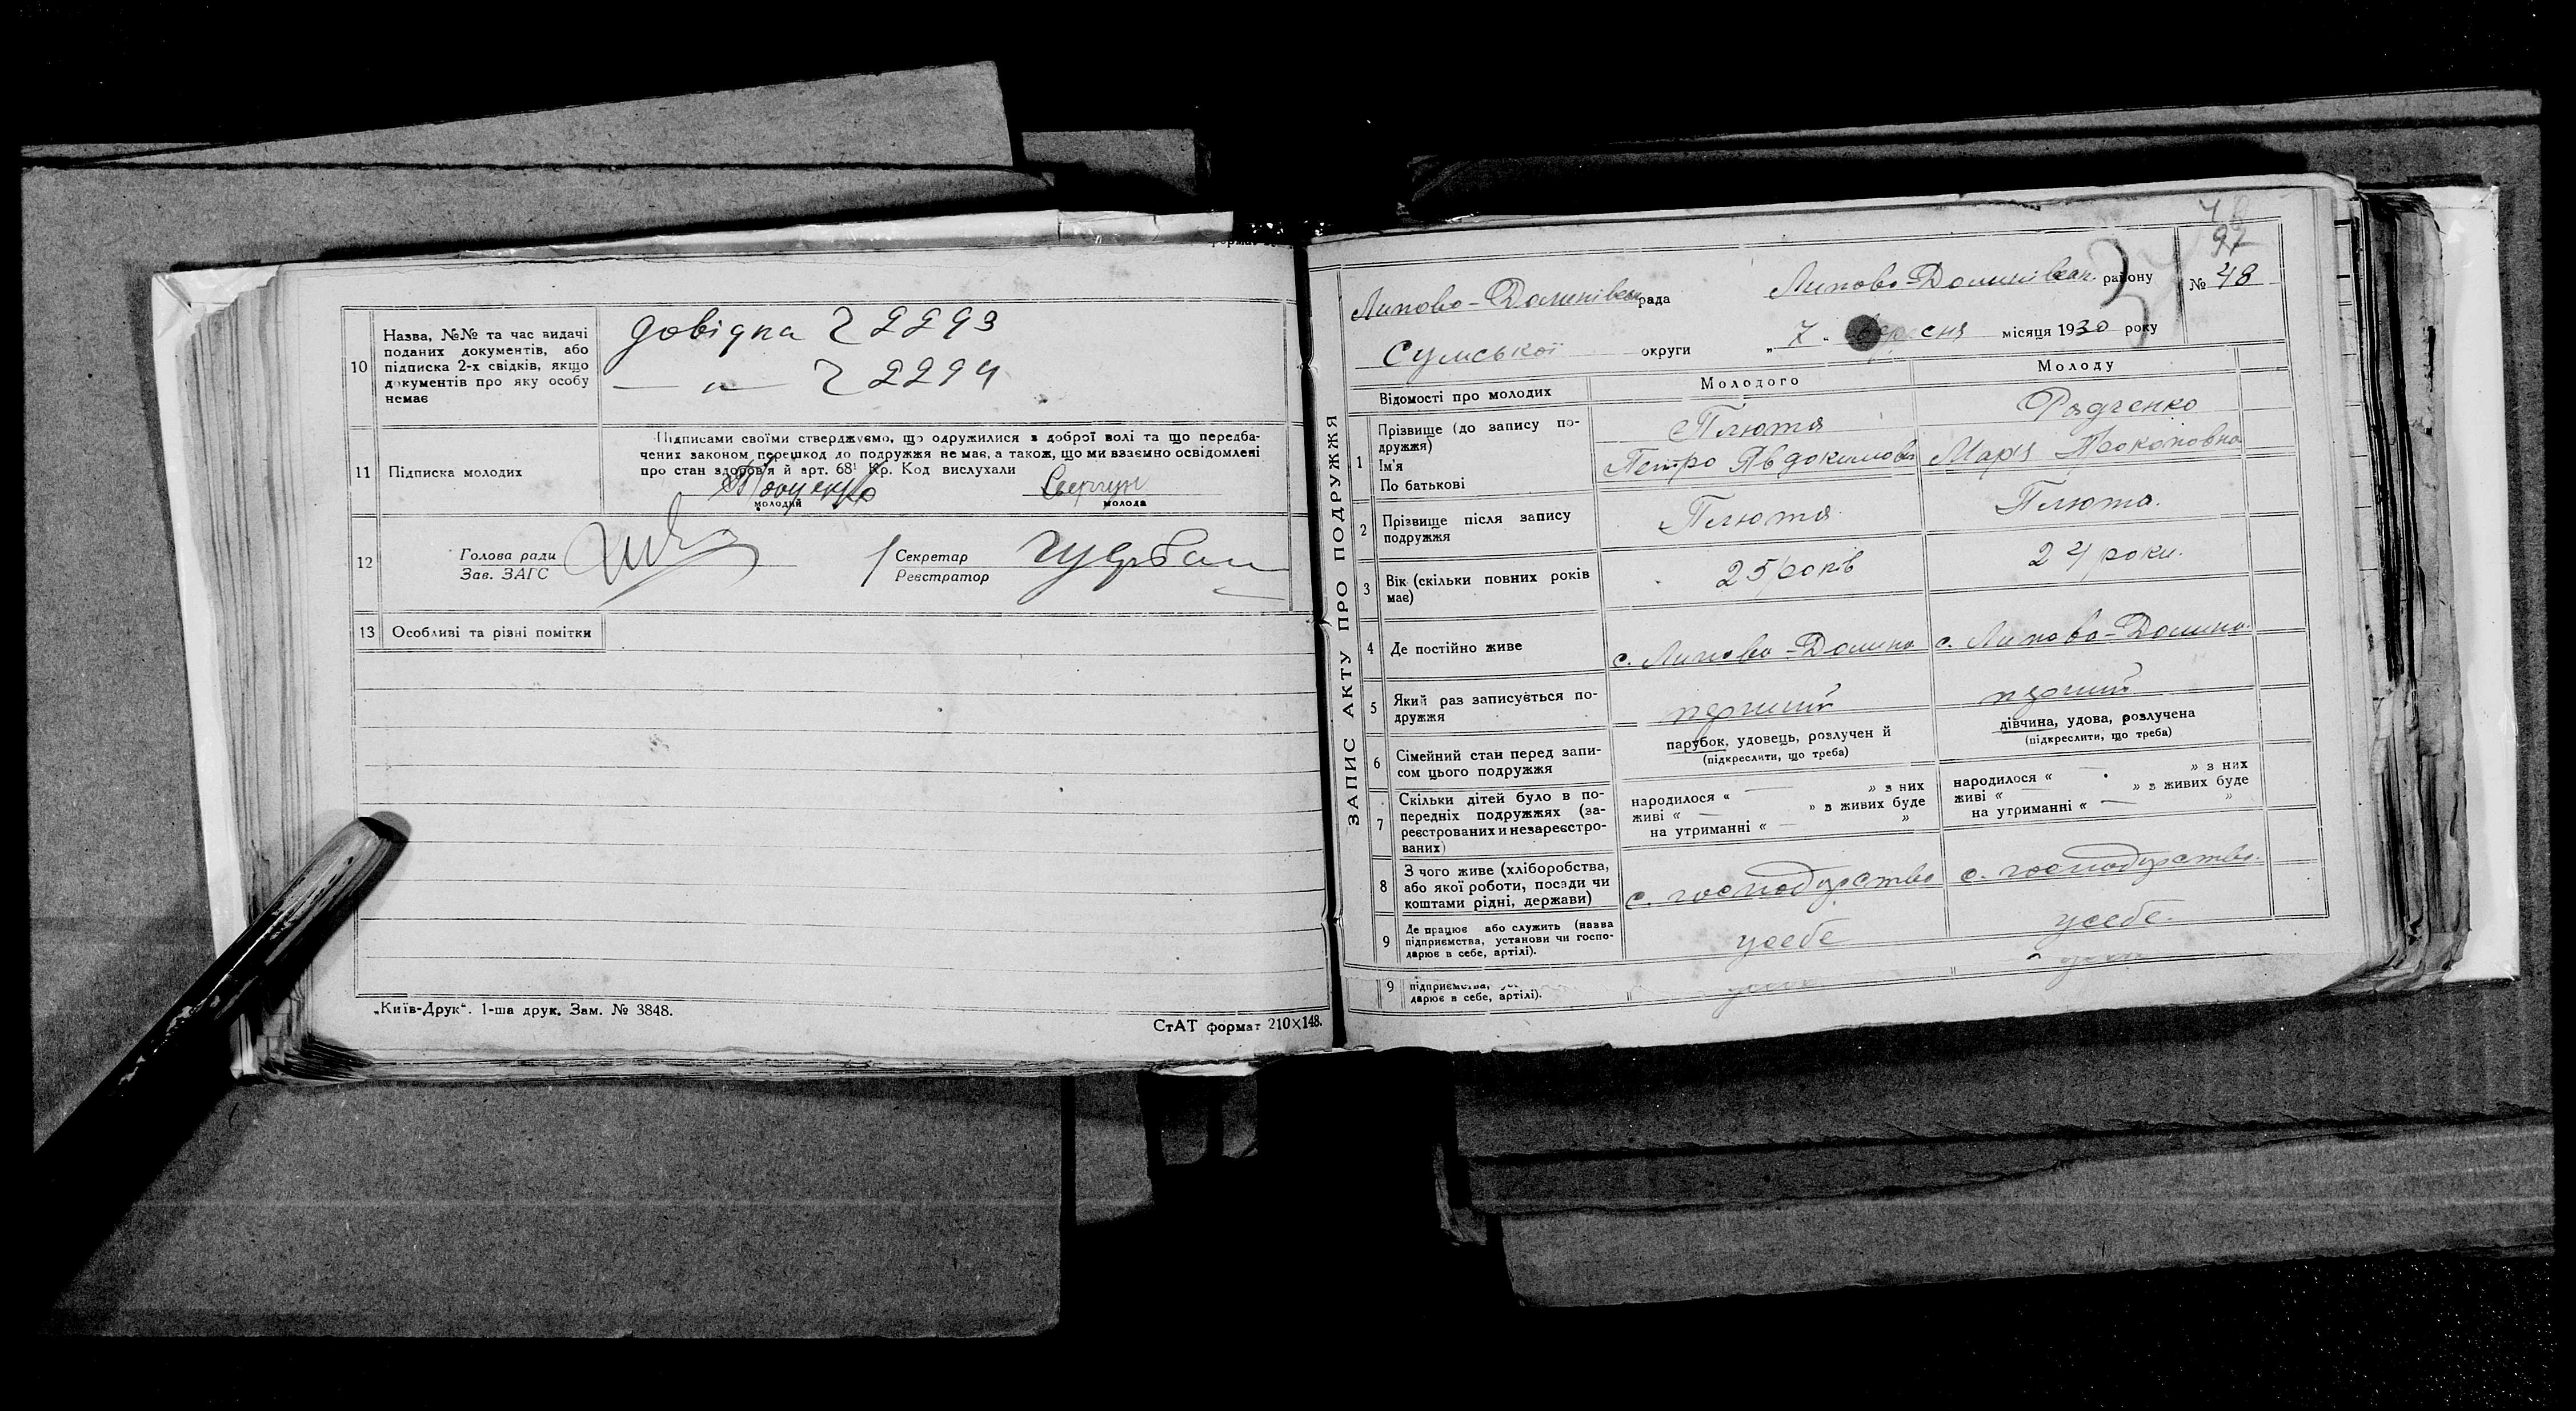 10 Назва, №№ та час видачі поданих документів, або підписка 2-х свідків, якщо документів про яку особу немає
довідка 2 2293
— „ — 2 2294
11 Підписка молодих
Підписами своїми стверджуємо, що одружилися з доброї волі та що передба-
чених законом перешкод до подружжя не має, а також, що ми взаємно освідомлені
про стан здоров'я й арт. 68¹ Кр. Код вислухали
молодий
молода
12 Голова ради
Зав. ЗАГС
Секретар
Реєстратор
13 Особливі та різні помітки
„Київ-Друк“. 1-ша друк. Зам. № 3848.
СтАТ формат 210×148.
97
ЗАПИС АКТУ ПРО ПОДРУЖЖЯ
Липово-Долинівськ рада Липово-Долинівськ. району № 48
Сумської округи „7“ вересня місяця 1930 року
Відомості про молодих Молодого Молоду
1 Прізвище (до запису по-
дружжя)
Ім'я
По батькові
Плютя
Петро Явдокимови
Радченко
Мар'я Прокоповна
2 Прізвище після запису
подружжя
Плютя
Плюта.
3 Вік (скільки повних років
має)
25 років
24 роки.
4 Де постійно живе
с. Липово-Долина
с. Липово-Долина.
5 Який раз записується по-
дружжя
перший
перший
6 Сімейний стан перед запи-
сом цього подружжя
парубок, удовець, розлучен й
(підкреслити, що треба)
дівчина, удова, розлучена
(підкреслити, що треба)
7 Скільки дітей було в по-
передніх подружжях (за-
реєстрованих и незареєстро-
ваних)
народилося « — » з них
живі « — » в живих буде
на утриманні « — »
народилося « — » з них
живі « » в живих буде
на утриманні « — »
8 З чого живе (хліборобства,
або якої роботи, посади чи
коштами рідні, держави)
с. господарство
с. господарство.
9 Де працює або служить (назва
підприємства, установи чи госпо-
дарює в себе, артілі).
усебе
усебе.
9 підприємства,
дарює в себе, артілі).